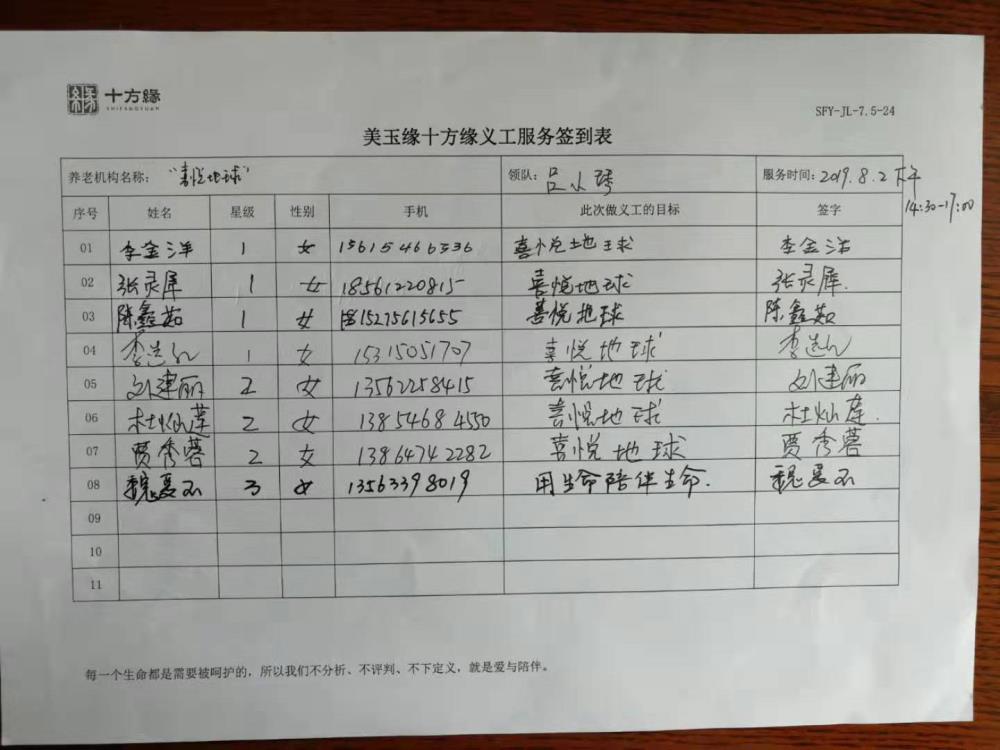 十方緣
SHIFANGYUAN
SFY-JL-7.5-24
美玉缘十方缘义工服务签到表
养老机构名称： "喜悦地球" 领队：吕小琴 服务时间：2019.8.2 下午
14:30-17:00
序号 姓名 星级 性别 手机 此次做义工的目标 签字
01 李金洋 1 女 15615466336 喜悦地球 李金洋
02 张灵犀 1 女 18561220815 喜悦地球 张灵犀.
03 陈鑫茹 1 女 15275615655 喜悦地球 陈鑫茹
04 李 1 女 15315051707 喜悦地球 李
05 刘建丽 2 女 13562258415 喜悦地球 刘建丽
06 杜灿莲 2 女 13854684550 喜悦地球 杜灿莲.
07 贾秀蓉 2 女 13864742282 喜悦地球 贾秀蓉
08 魏 3 女 13563398019 用生命陪伴生命. 魏
09
10
11
每一个生命都是需要被呵护的，所以我们不分析、不评判、不下定义，就是爱与陪伴。